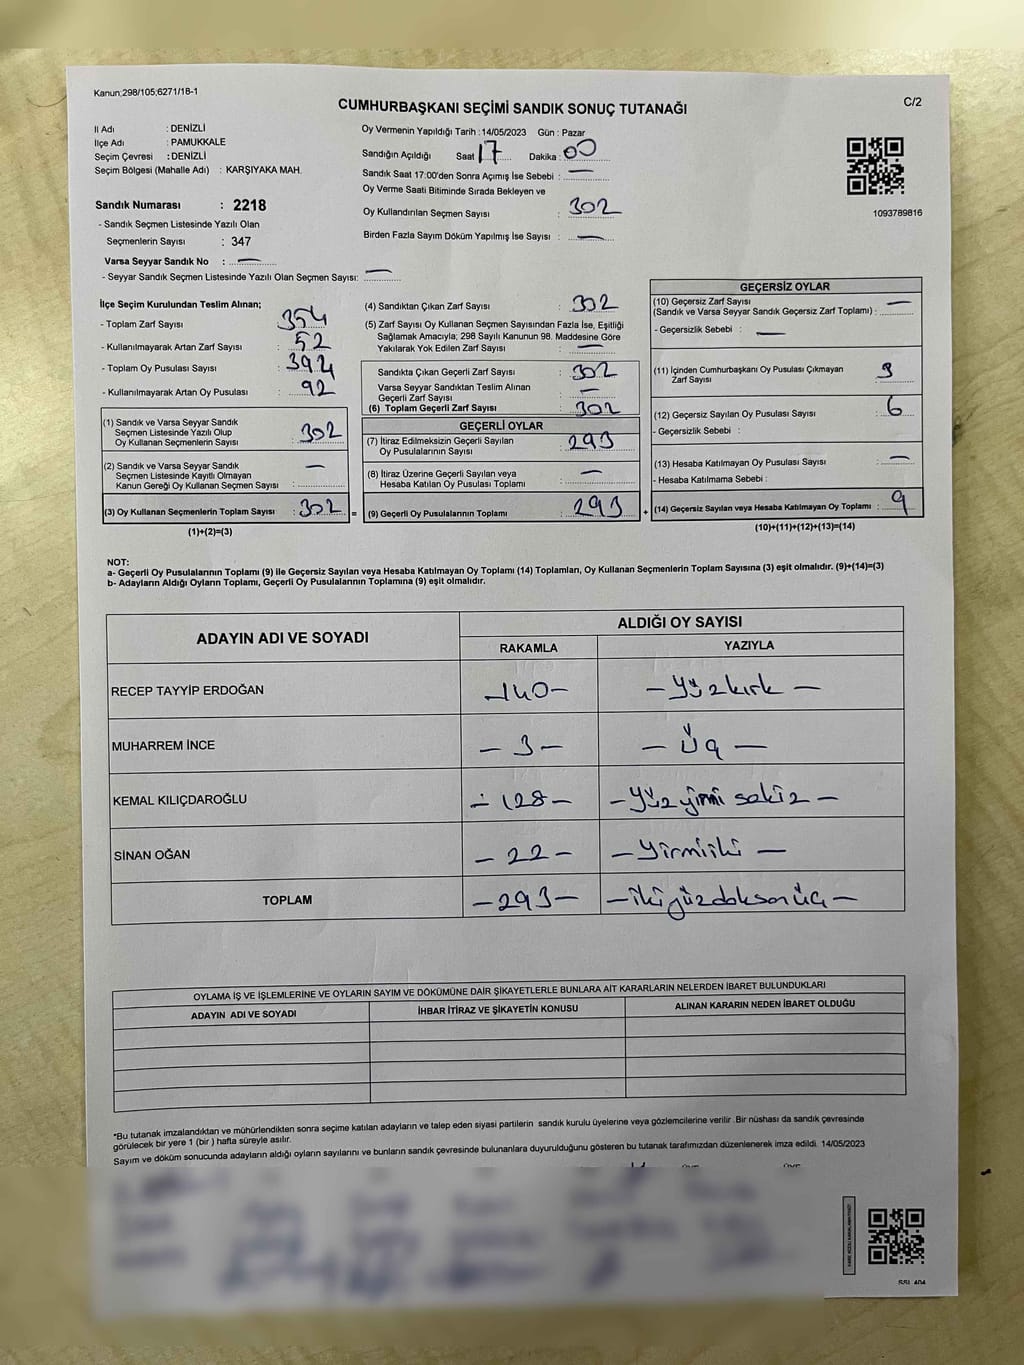 Kanun;298/105;6271/18-1
CUMHURBAŞKANI SEÇİMİ SANDIK SONUÇ TUTANAĞI
C/2
İl Adı : DENİZLİ
İlçe Adı : PAMUKKALE
Seçim Çevresi : DENİZLİ
Seçim Bölgesi (Mahalle Adı) : KARŞIYAKA MAH.
Sandık Numarası : 2218
- Sandık Seçmen Listesinde Yazılı Olan
Seçmenlerin Sayısı : 347
Varsa Seyyar Sandık No : —
- Seyyar Sandık Seçmen Listesinde Yazılı Olan Seçmen Sayısı: —
Oy Vermenin Yapıldığı Tarih : 14/05/2023 Gün : Pazar
Sandığın Açıldığı Saat 17 Dakika : 00
Sandık Saat 17:00'den Sonra Açımış İse Sebebi : —
Oy Verme Saati Bitiminde Sırada Bekleyen ve
Oy Kullandırılan Seçmen Sayısı : 302
Birden Fazla Sayım Döküm Yapılmış İse Sayısı : —
1093789816
İlçe Seçim Kurulundan Teslim Alınan;
- Toplam Zarf Sayısı : 354
- Kullanılmayarak Artan Zarf Sayısı : 52
- Toplam Oy Pusulası Sayısı : 394
- Kullanılmayarak Artan Oy Pusulası : 92
(1) Sandık ve Varsa Seyyar Sandık
Seçmen Listesinde Yazılı Olup
Oy Kullanan Seçmenlerin Sayısı : 302
(2) Sandık ve Varsa Seyyar Sandık
Seçmen Listesinde Kayıtlı Olmayan
Kanun Gereği Oy Kullanan Seçmen Sayısı : —
(3) Oy Kullanan Seçmenlerin Toplam Sayısı : 302 =
(1)+(2)=(3)
(4) Sandıktan Çıkan Zarf Sayısı : 302
(5) Zarf Sayısı Oy Kullanan Seçmen Sayısından Fazla İse, Eşitliği
Sağlamak Amacıyla; 298 Sayılı Kanunun 98. Maddesine Göre
Yakılarak Yok Edilen Zarf Sayısı : —
Sandıkta Çıkan Geçerli Zarf Sayısı : 302
Varsa Seyyar Sandıktan Teslim Alınan
Geçerli Zarf Sayısı : —
(6) Toplam Geçerli Zarf Sayısı : 302
GEÇERLİ OYLAR
(7) İtiraz Edilmeksizin Geçerli Sayılan
Oy Pusulalarının Sayısı : 293
(8) İtiraz Üzerine Geçerli Sayılan veya
Hesaba Katılan Oy Pusulası Toplamı : —
(9) Geçerli Oy Pusulalarının Toplamı : 293 +
GEÇERSİZ OYLAR
(10) Geçersiz Zarf Sayısı —
(Sandık ve Varsa Seyyar Sandık Geçersiz Zarf Toplamı) :
- Geçersizlik Sebebi : —
(11) İçinden Cumhurbaşkanı Oy Pusulası Çıkmayan
Zarf Sayısı : 3
(12) Geçersiz Sayılan Oy Pusulası Sayısı : 6
- Geçersizlik Sebebi :
(13) Hesaba Katılmayan Oy Pusulası Sayısı : —
- Hesaba Katılmama Sebebi :
(14) Geçersiz Sayılan veya Hesaba Katılmayan Oy Toplamı : 9
(10)+(11)+(12)+(13)=(14)
NOT:
a- Geçerli Oy Pusulalarının Toplamı (9) ile Geçersiz Sayılan veya Hesaba Katılmayan Oy Toplamı (14) Toplamları, Oy Kullanan Seçmenlerin Toplam Sayısına (3) eşit olmalıdır. (9)+(14)=(3)
b- Adayların Aldığı Oyların Toplamı, Geçerli Oy Pusulalarının Toplamına (9) eşit olmalıdır.
ADAYIN ADI VE SOYADI
ALDIĞI OY SAYISI
RAKAMLA YAZIYLA
RECEP TAYYİP ERDOĞAN -140- - Yüzkırk -
MUHARREM İNCE - 3 - - Üç -
KEMAL KILIÇDAROĞLU - 128 - - Yüz yirmi sekiz -
SİNAN OĞAN - 22 - - Yirmiiki -
TOPLAM - 293 - - ikiyüzdoksanüç -
OYLAMA İŞ VE İŞLEMLERİNE VE OYLARIN SAYIM VE DÖKÜMÜNE DAİR ŞİKAYETLERLE BUNLARA AİT KARARLARIN NELERDEN İBARET BULUNDUKLARI
ADAYIN ADI VE SOYADI İHBAR İTİRAZ VE ŞİKAYETİN KONUSU ALINAN KARARIN NEDEN İBARET OLDUĞU
*Bu tutanak imzalandıktan ve mühürlendikten sonra seçime katılan adayların ve talep eden siyasi partilerin sandık kurulu üyelerine veya gözlemcilerine verilir .Bir nüshası da sandık çevresinde
görülecek bir yere 1 (bir ) hafta süreyle asılır.
Sayım ve döküm sonucunda adayların aldığı oyların sayılarını ve bunların sandık çevresinde bulunanlara duyurulduğunu gösteren bu tutanak tarafımızdan düzenlenerek imza edildi. 14/05/2023